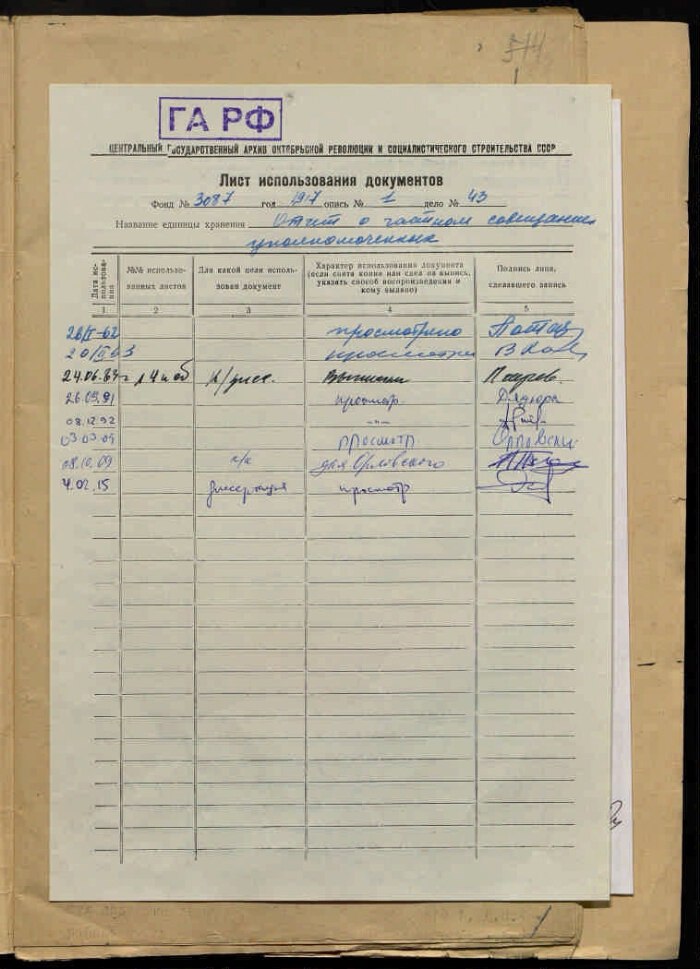 574
ГА РФ
ЦЕНТРАЛЬНЫЙ ГОСУДАРСТВЕННЫЙ АРХИВ ОКТЯБРЬСКОЙ РЕВОЛЮЦИИ И СОЦИАЛИСТИЧЕСКОГО СТРОИТЕЛЬСТВА СССР
Лист использования документов
Фонд № 3087 год 1917 опись № 1 дело № 43
Название единицы хранения Отчет о частном совещании
уполномоченных
Дата использования
№№ использованных листов
Для какой цели использован документ
Характер использования документа (если снята копия или сделана выпись, указать способ воспроизведения и кому выдано)
Подпись лица, сделавшего запись
1 2 3 4 5
просмотрено
просмотрен В
24.06.87 к/дисс.
26.09.91 просмотр
08.12.92 —"—
03.03.09 просмотр Орловский
08.10.09 для Орловского
4.02.15 диссертация просмотр